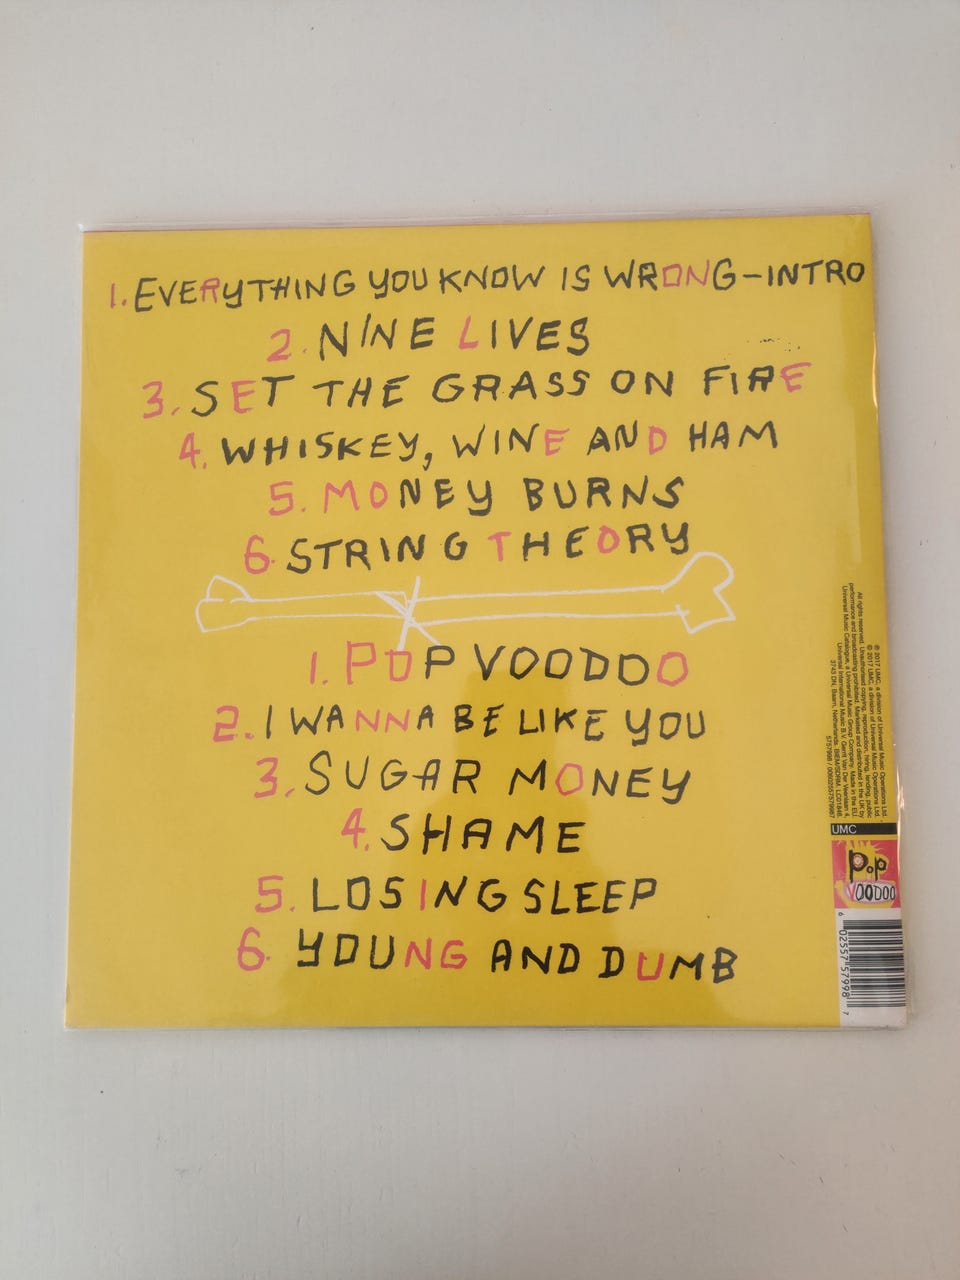 1. EVERYTHING YOU KNOW IS WRONG-INTRO
2. NINE LIVES
3. SET THE GRASS ON FIRE
4. WHISKEY, WINE AND HAM
5. MONEY BURNS
6. STRING THEORY
1. POP VOODOO
2. I WANNA BE LIKE YOU
3. SUGAR MONEY
4. SHAME
5. LOSING SLEEP
6. YOUNG AND DUMB
℗ 2017 UMC, a division of Universal Music Operations Ltd.
© 2017 UMC, a division of Universal Music Operations Ltd.
All rights reserved. Unauthorised copying, reproduction, hiring, lending, public
performance and broadcasting prohibited. Marketed and distributed in the UK by
Universal Music Catalogue, a Universal Music Group Company. Made in the EU.
Universal International Music B.V. Gerrit Van Der Veenlaan 4,
3743 DN, Baarn, Netherlands. BIEM/SDRM. LC01846.
5757998 / 00602557579987
UMC
POP
VOODOO
6 02557 57998 7